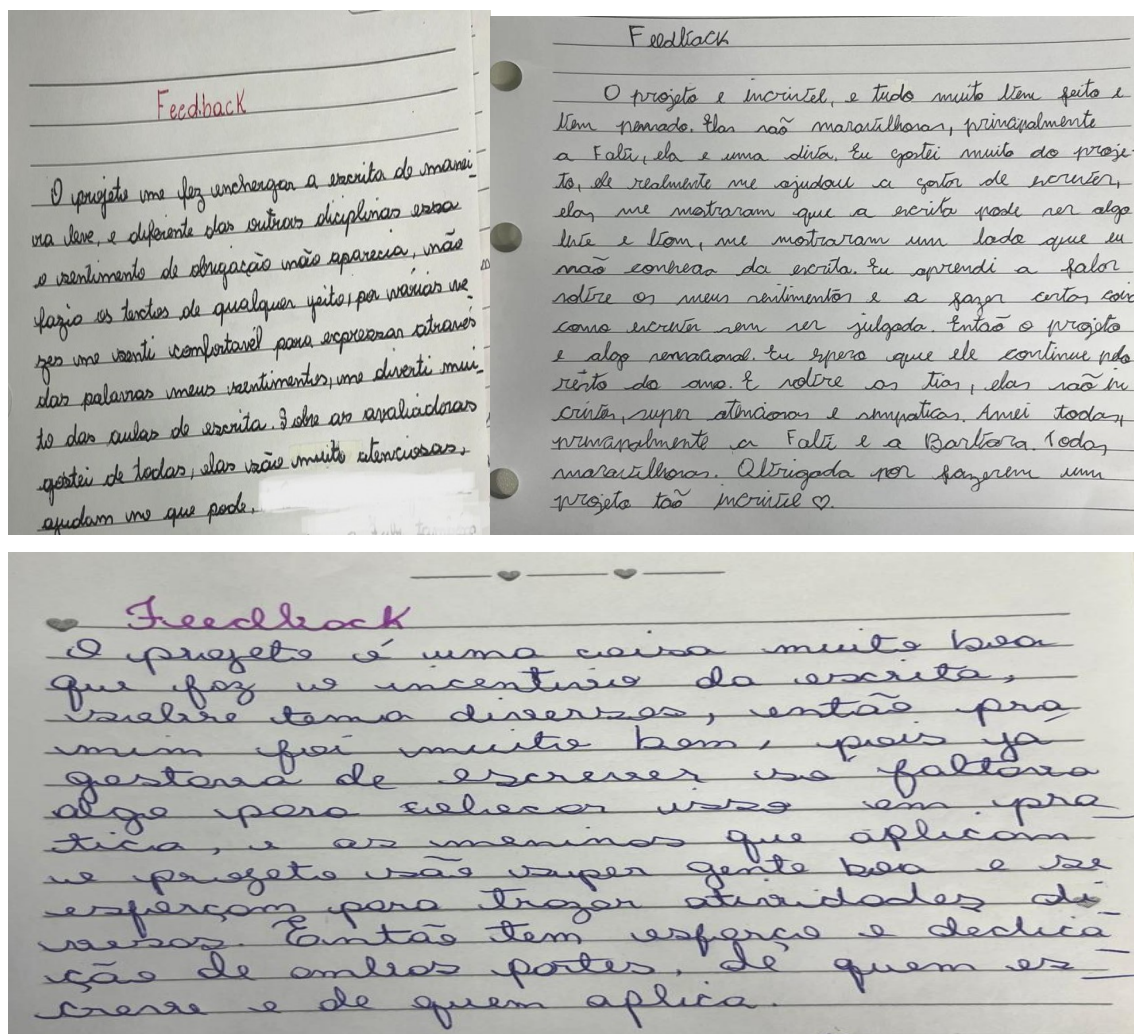 Feedback
O projeto me fez enchergar a escrita de manei-
ra leve, e diferente das outras diciplinas essa
o sentimento de obrigação não aparecia, não
fazia os textos de qualquer jeito, por várias ve
zes me senti comfortavel para expressar através
das palavras meus sentimentos, me diverti mui-
to das aulas de escrita. Sobre as avaliadoras
gostei de todas, elas são muito atenciosas,
ajudam no que pode.
Feedback
O projeto e incrivel, e tudo muito bem feito e
bem pensado. Elas são maravilhosas, principalmente
a Fabi, ela e uma diva. Eu gostei muito do proje-
to, ele realmente me ajudou a gostar de escrever,
elas me mostraram que a escrita pode ser algo
leve e bom, me mostraram um lado que eu
não conhecia da escrita. Eu aprendi a falar
sobre os meus sentimentos e a fazer certas
como escrever sem ser julgada. Então o projeto
e algo sensacional. Eu espero que ele continue pelo
resto do ano. E sobre as tias, elas são in
criveis, super atenciosas e simpaticas. Amei todas,
principalmente a Fabi e a Barbara. Todas
maravilhosas. Obrigada por fazerem um
projeto tão incrivel ♡.
Feedback
O projeto é uma coisa muito boa
que faz o incentivo da escrita,
sobre tema diversos, então pra
mim foi muito bom, pois ja
gostava de escrever so faltava
algo para colocar isso em pra-
tica, e as meninas que aplicam
o projeto são super gente boa e se
esforçam para trazer atividades di
versas. Então tem esforço e dedica-
ção de ambas partes, de quem es-
creve e de quem aplica.